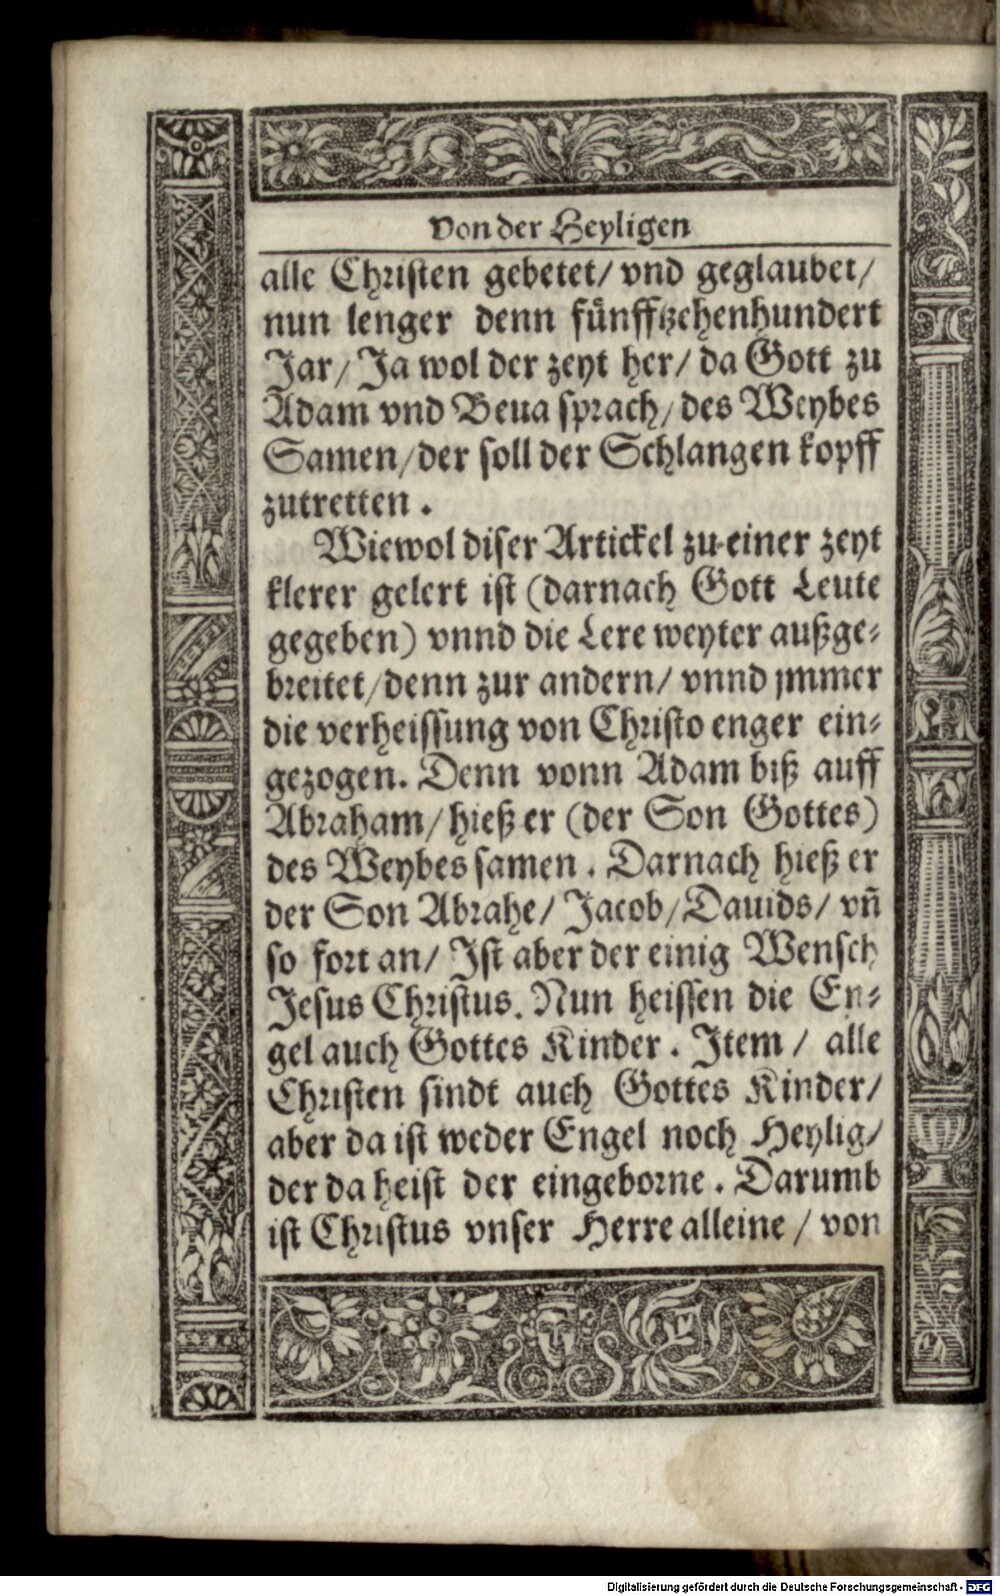 von der Heyligen
alle Christen gebetet/ vnd geglaubet/
nun lenger denn fünfftzehenhundert
Jar/ Ja wol der zeyt her/ da Gott zu
Adam vnd Heua sprach/ des Weybes
Samen/ der soll der Schlangen kopff
zutretten.
Wiewol diser Artickel zu einer zeyt
klerer gelert ist (darnach Gott Leute
gegeben) vnnd die Lere weyter außge⸗
breitet/ denn zur andern/ vnnd jmmer
die verheissung von Christo enger ein⸗
gezogen. Denn vonn Adam biß auff
Abraham/ hieß er (der Son Gottes)
des Weybes samen. Darnach hieß er
der Son Abrahe/ Jacob/ Dauids/ vñ
so fort an/ Ist aber der einig Mensch
Jesus Christus. Nun heissen die En⸗
gel auch Gottes Kinder. Item/ alle
Christen sindt auch Gottes Kinder/
aber da ist weder Engel noch Heylig/
der da heist der eingeborne. Darumb
ist Christus vnser Herre alleine/ von
Digitalisierung gefördert durch die Deutsche Forschungsgemeinschaft - DFG